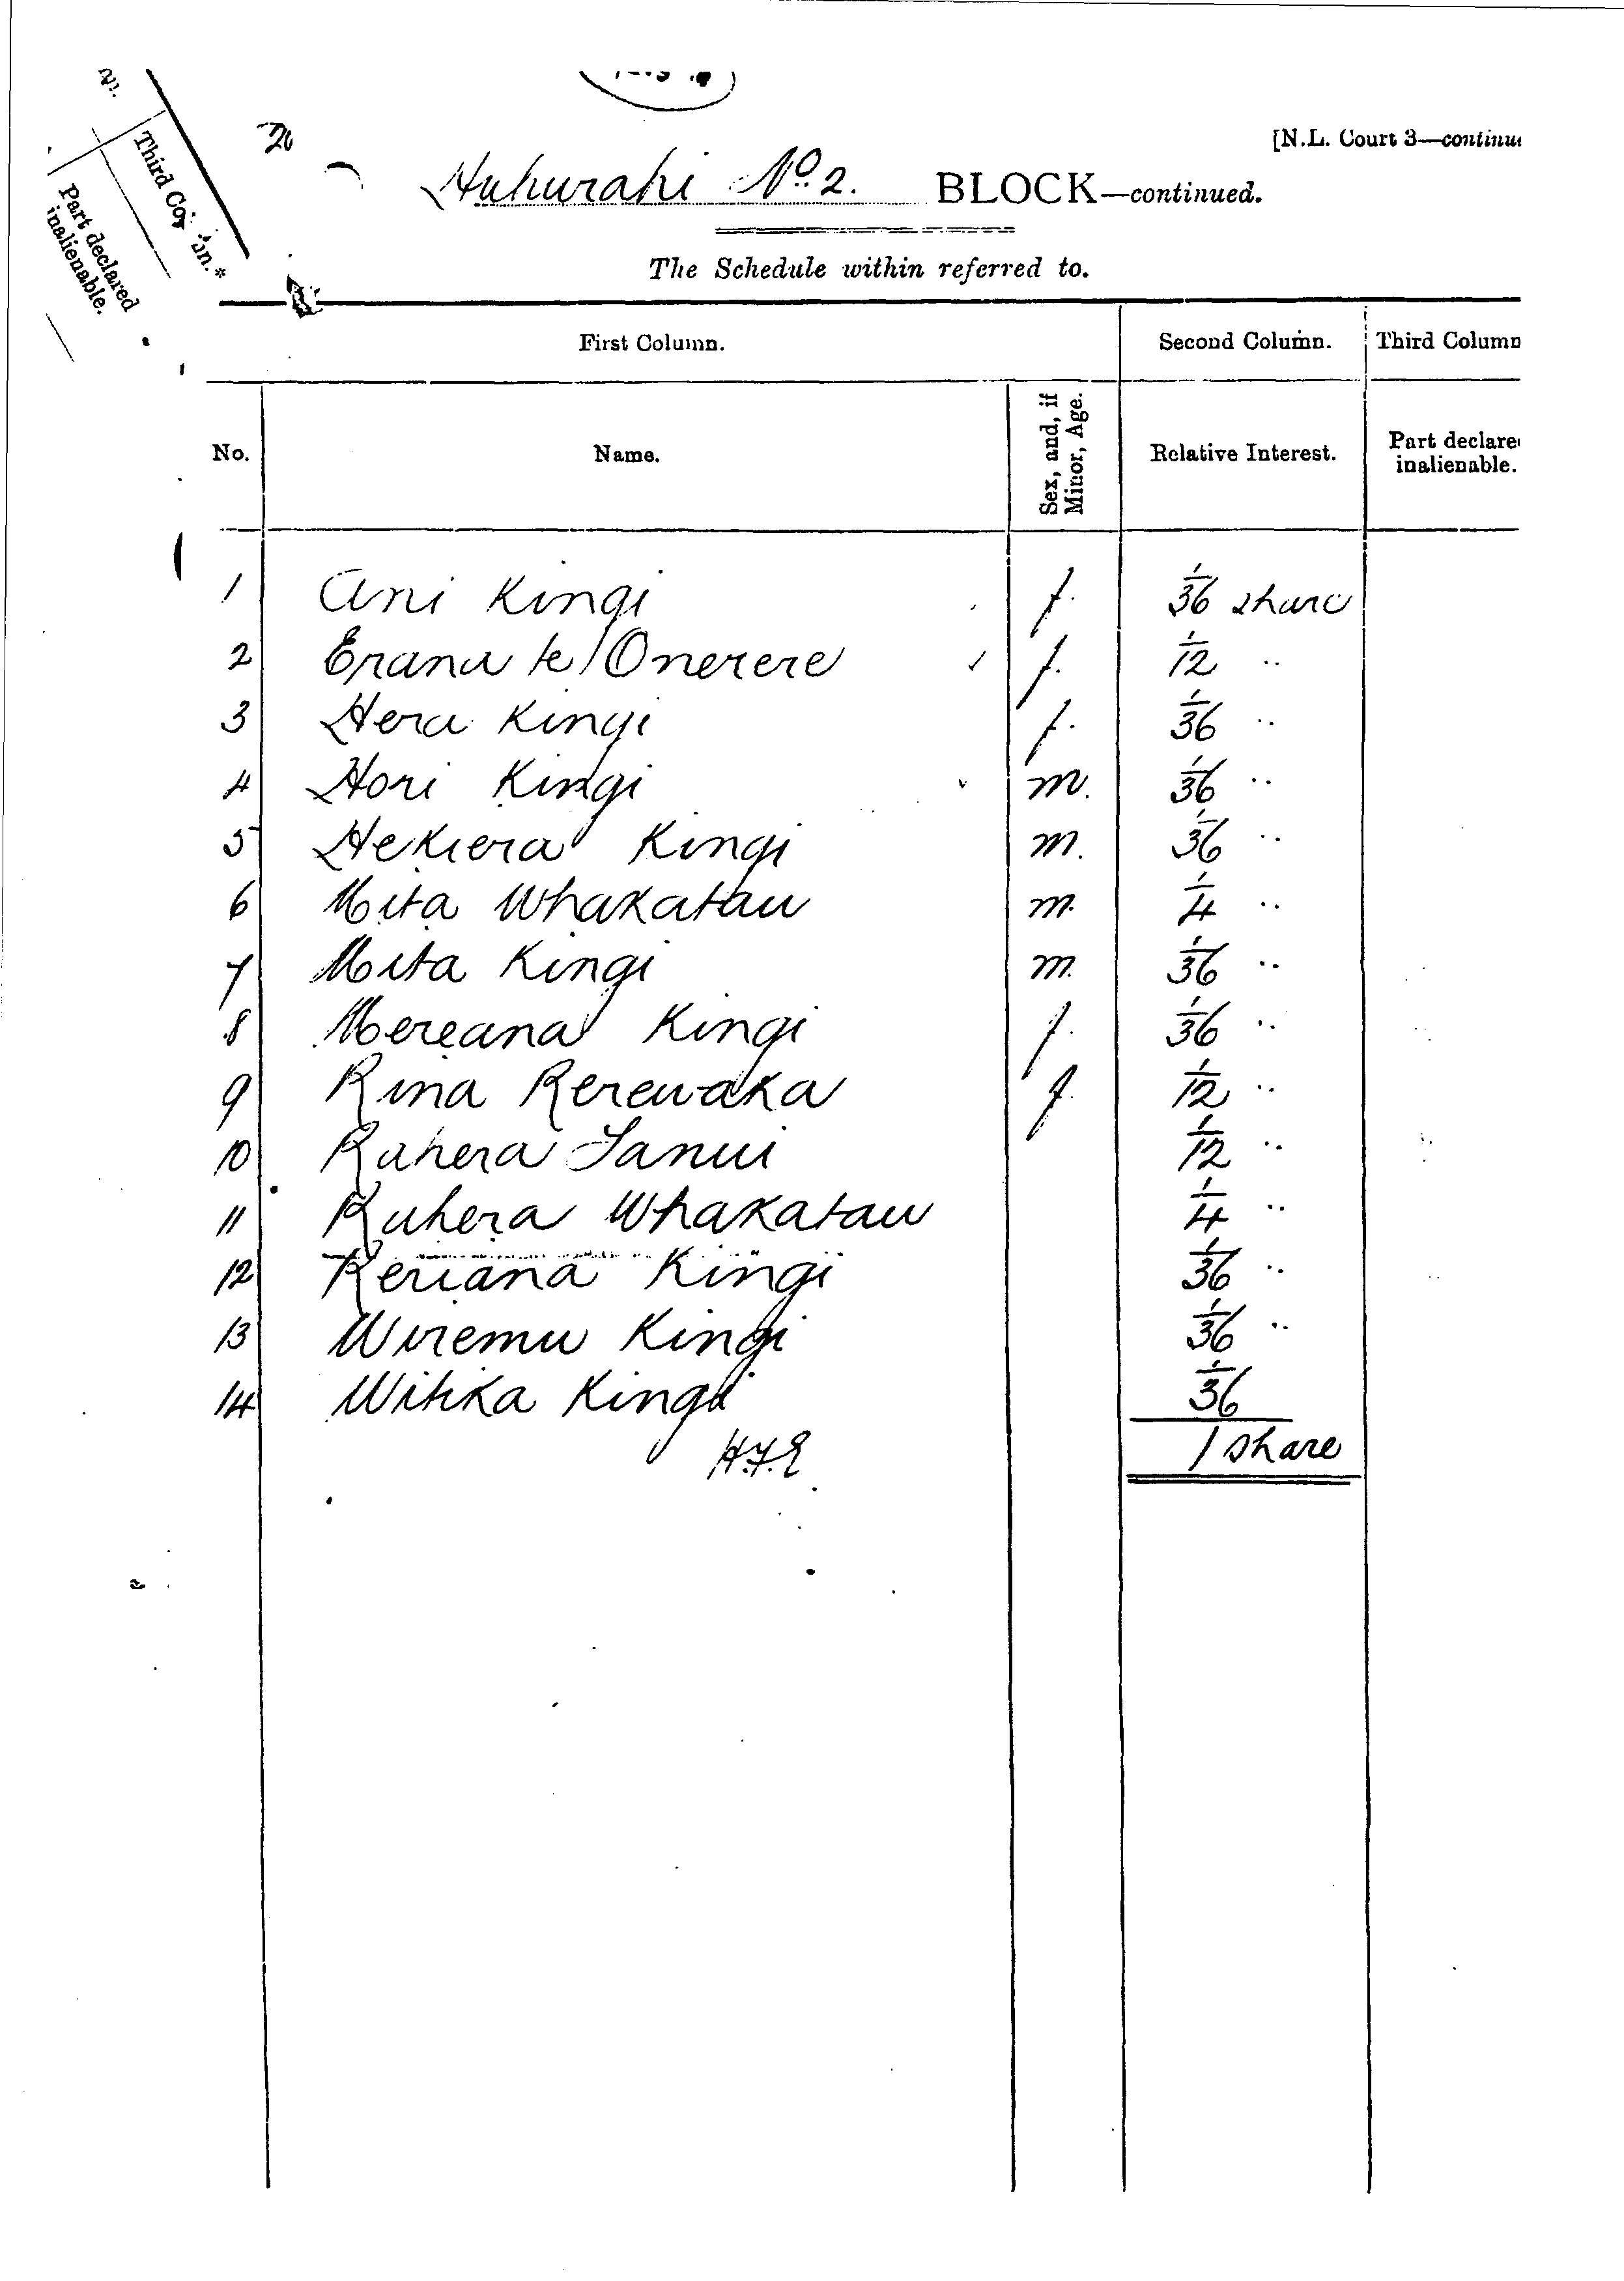 Third Co
Part declared
inalienable.
[N.L. Court 3—continu
Huhurahi No. 2. BLOCK—continued.
The Schedule within referred to.
First Column. Second Column. Third Column
No. Name. Sex, and, if Minor, Age. Relative Interest. Part declare inalienable.
1 Ani Kingi f. 1/36 share
2 Erana te Onerere ✓ f. 1/12 "
3 Hera Kingi f. 1/36 "
4 Hori Kingi m. 1/36 "
5 Hekiera Kingi m. 1/36 "
6 Mita Whakatau m. 1/4 "
7 Mita Kingi m. 1/36 "
8 Mereana Kingi f. 1/36 "
9 Rina Rerewaka f. 1/12 "
10 Rahera Tanui 1/12 "
11 Rahera Whakatau 1/4 "
12 Reriana Kingi 1/36 "
13 Wiremu Kingi 1/36 "
14 Wihka Kingi 1/36
H.F.E 1 share